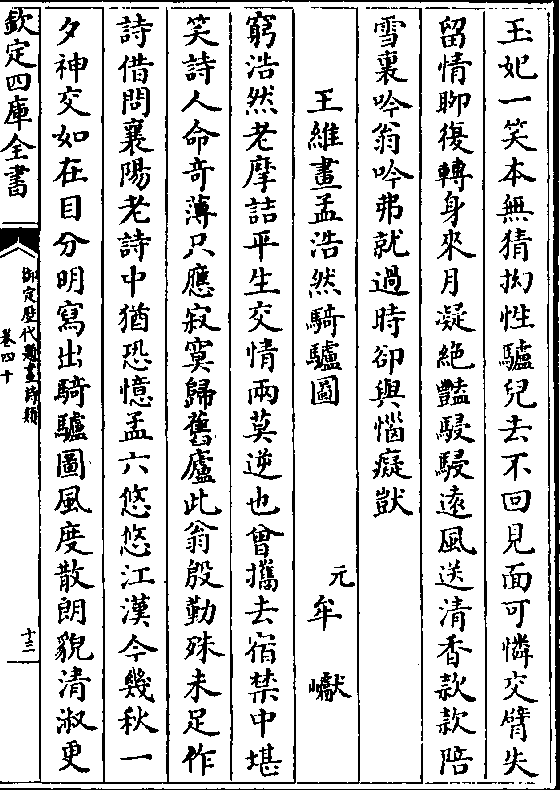 玉妃一笑本無猜拗性驢兒去不回見面可憐交臂失
留情聊復轉身來月凝絶豔駸駸逺風送清香欵欵陪
雪裏吟翁吟弗就過時卻與惱癡獃
王維畫孟浩然騎驢圖
元 牟巘
窮浩然老摩詰平生交情兩莫逆也曾攜去宿禁中堪
笑詩人命奇薄只應寂寞歸舊廬此翁殷勤殊未足作
詩借問襄陽老詩中猶恐憶孟六悠悠江漢今幾秋一
夕神交如在目分明寫出騎驢圖風度散朗貌清淑更
欽定四庫全書
御定歴代題畫詩類
卷四十
十三